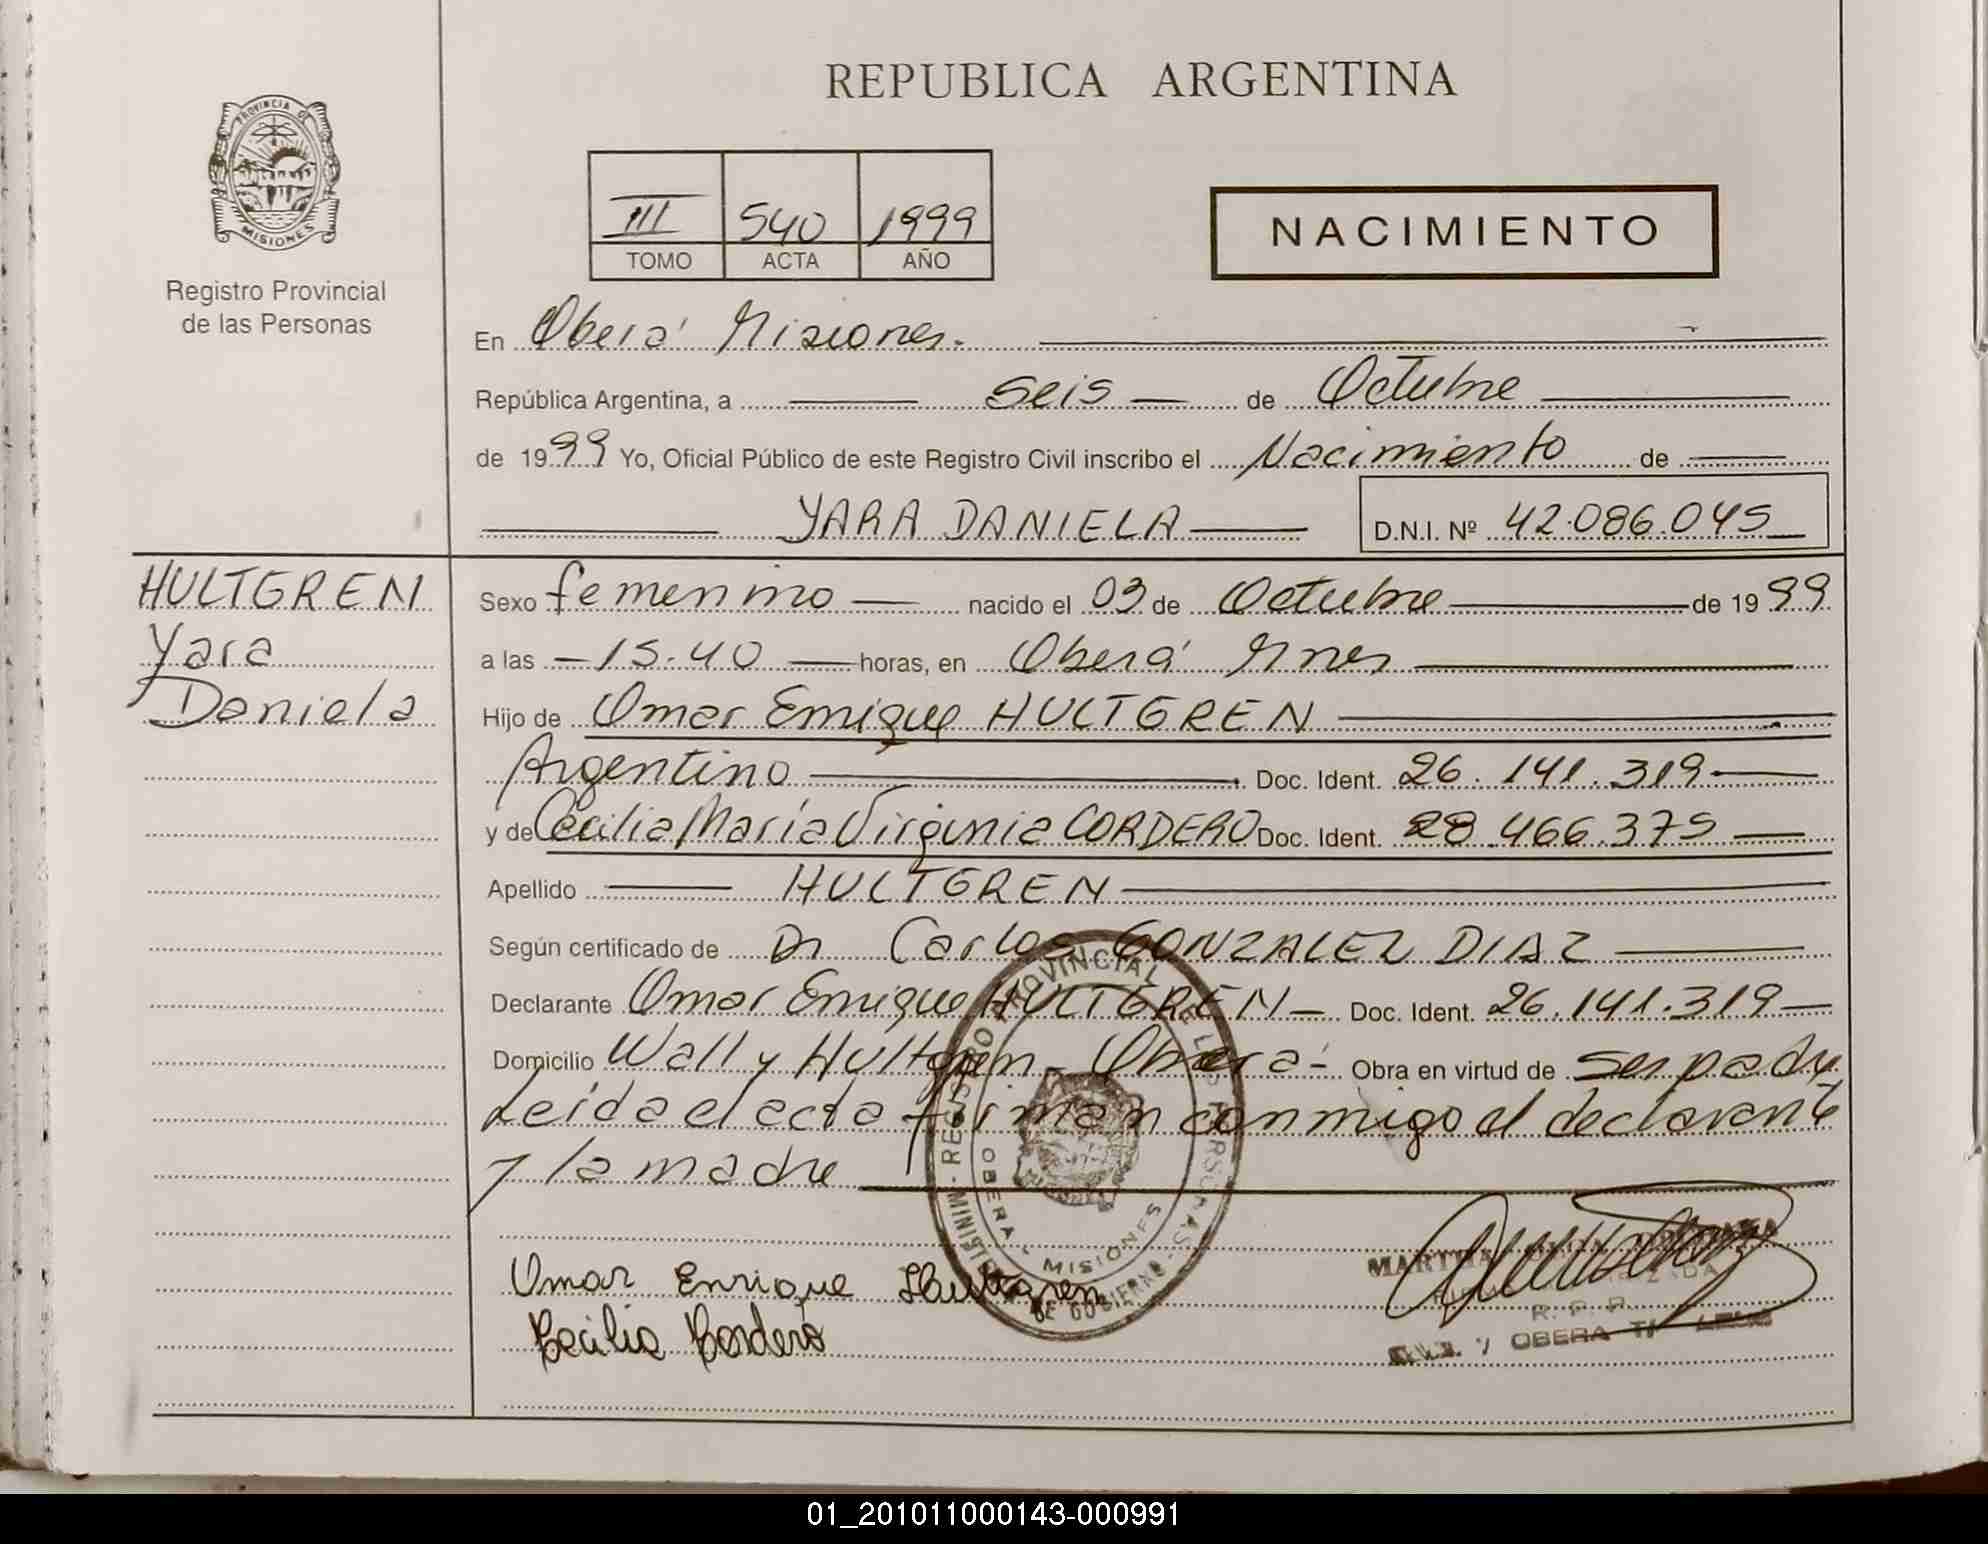 REPUBLICA ARGENTINA
PROVINCIA DE
MISIONES
Registro Provincial
de las Personas
III 540 1999
TOMO ACTA AÑO
NACIMIENTO
En Oberá Misiones.
República Argentina, a seis de Octubre
de 1999 Yo, Oficial Público de este Registro Civil inscribo el Nacimiento de
YARA DANIELA D.N.I. Nº 42.086.045
HULTGREN
Yara
Daniela
Sexo femenino nacido el 03 de Octubre de 1999
a las 15.40 horas, en Oberá Mnes
Hijo de Omar Enrique HULTGREN
Argentino Doc. Ident. 26.141.319
y de Cecilia María Virginia CORDERO Doc. Ident. 28.466.375
Apellido HULTGREN
Según certificado de Dr Carlos GONZALEZ DIAZ
Declarante Omar Enrique HULTGREN Doc. Ident. 26.141.319
Domicilio Wall y Hultgren - Oberá - Obra en virtud de ser padre
Leída el acta firman conmigo el declarante
y la madre
REGISTRO PROVINCIAL DE LAS PERSONAS - MINISTERIO DE GOBIERNO -
OBERA - MISIONES
Omar Enrique Hultgren
Cecilia Cordero
MARTHA
R. P. P.
OBERA
01_201011000143-000991